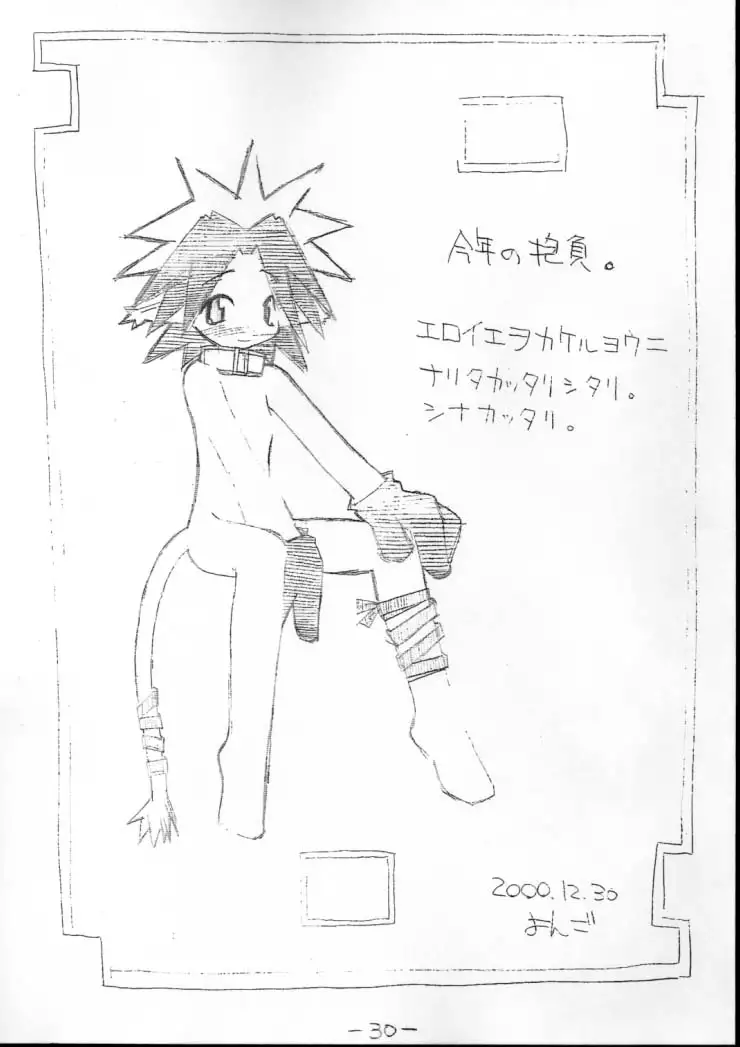 今年の抱負。
エロイエヲカケルヨウニ
ナリタカッタリシタリ。
シナカッタリ。
2000.12.30
よんご
-30-